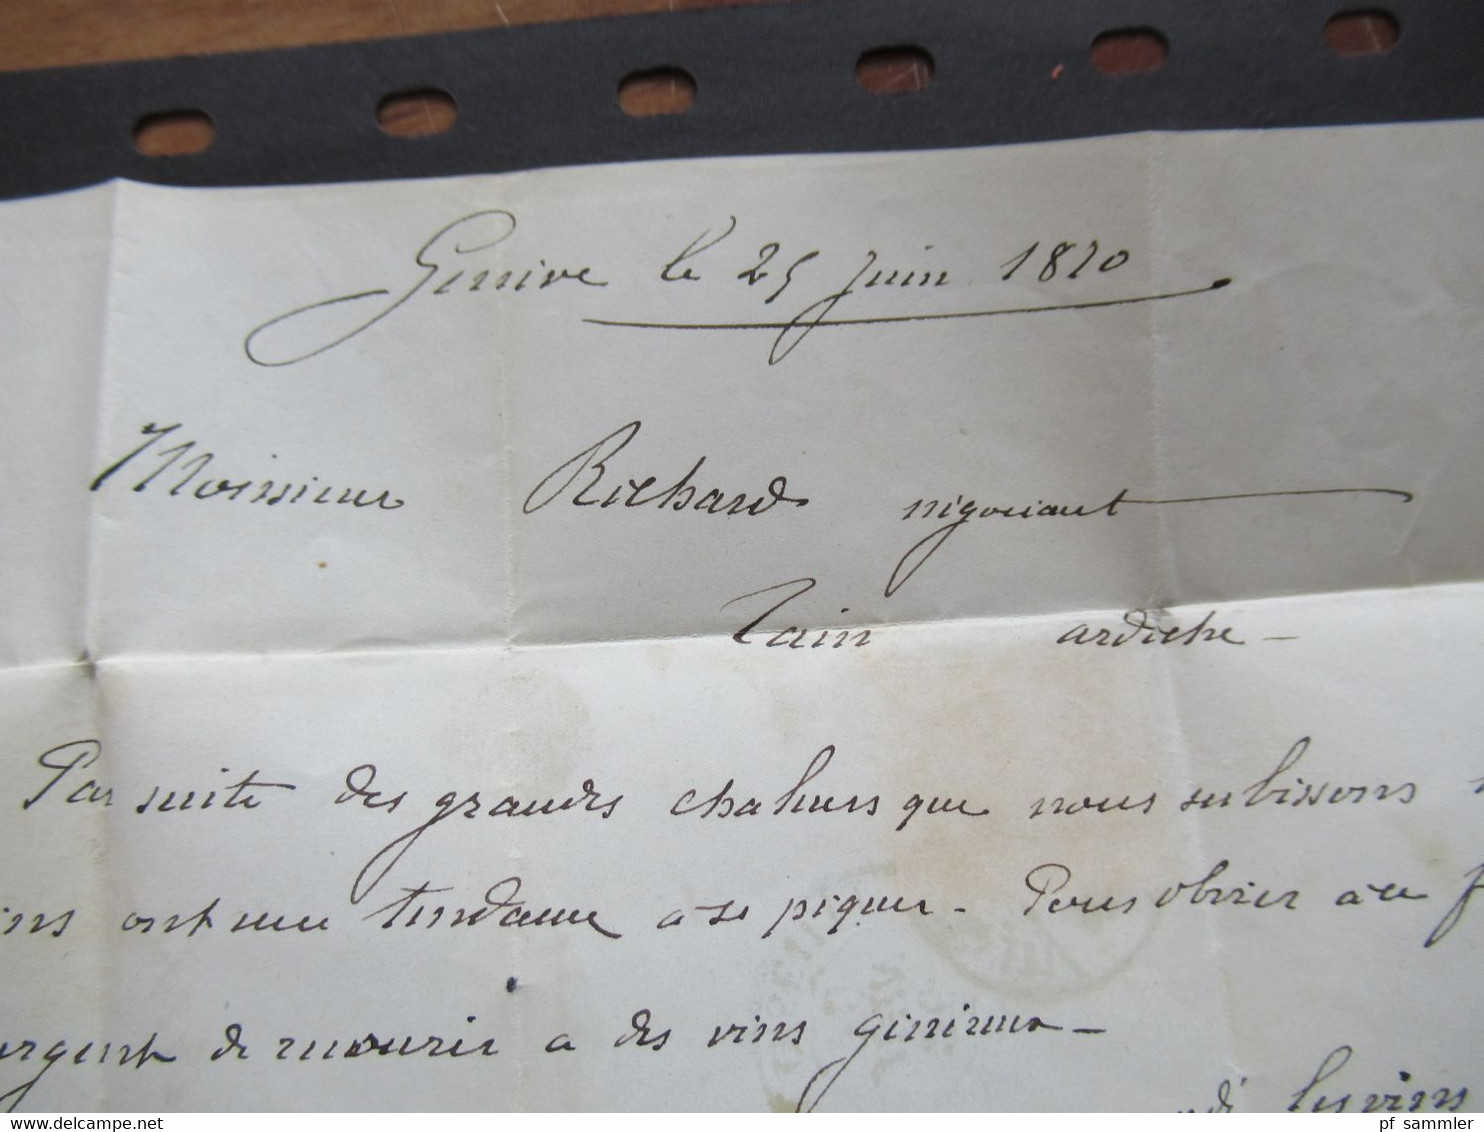 Genève le 25 juin 1870
Monsieur Richard négociant
Tain ardèche -
Par suite des grandes chaleurs que nous subissons
ont une tendance à se piquer - Pour obvier à ce
urgent de mourir a des vins généreux -
les vins
pf sammler